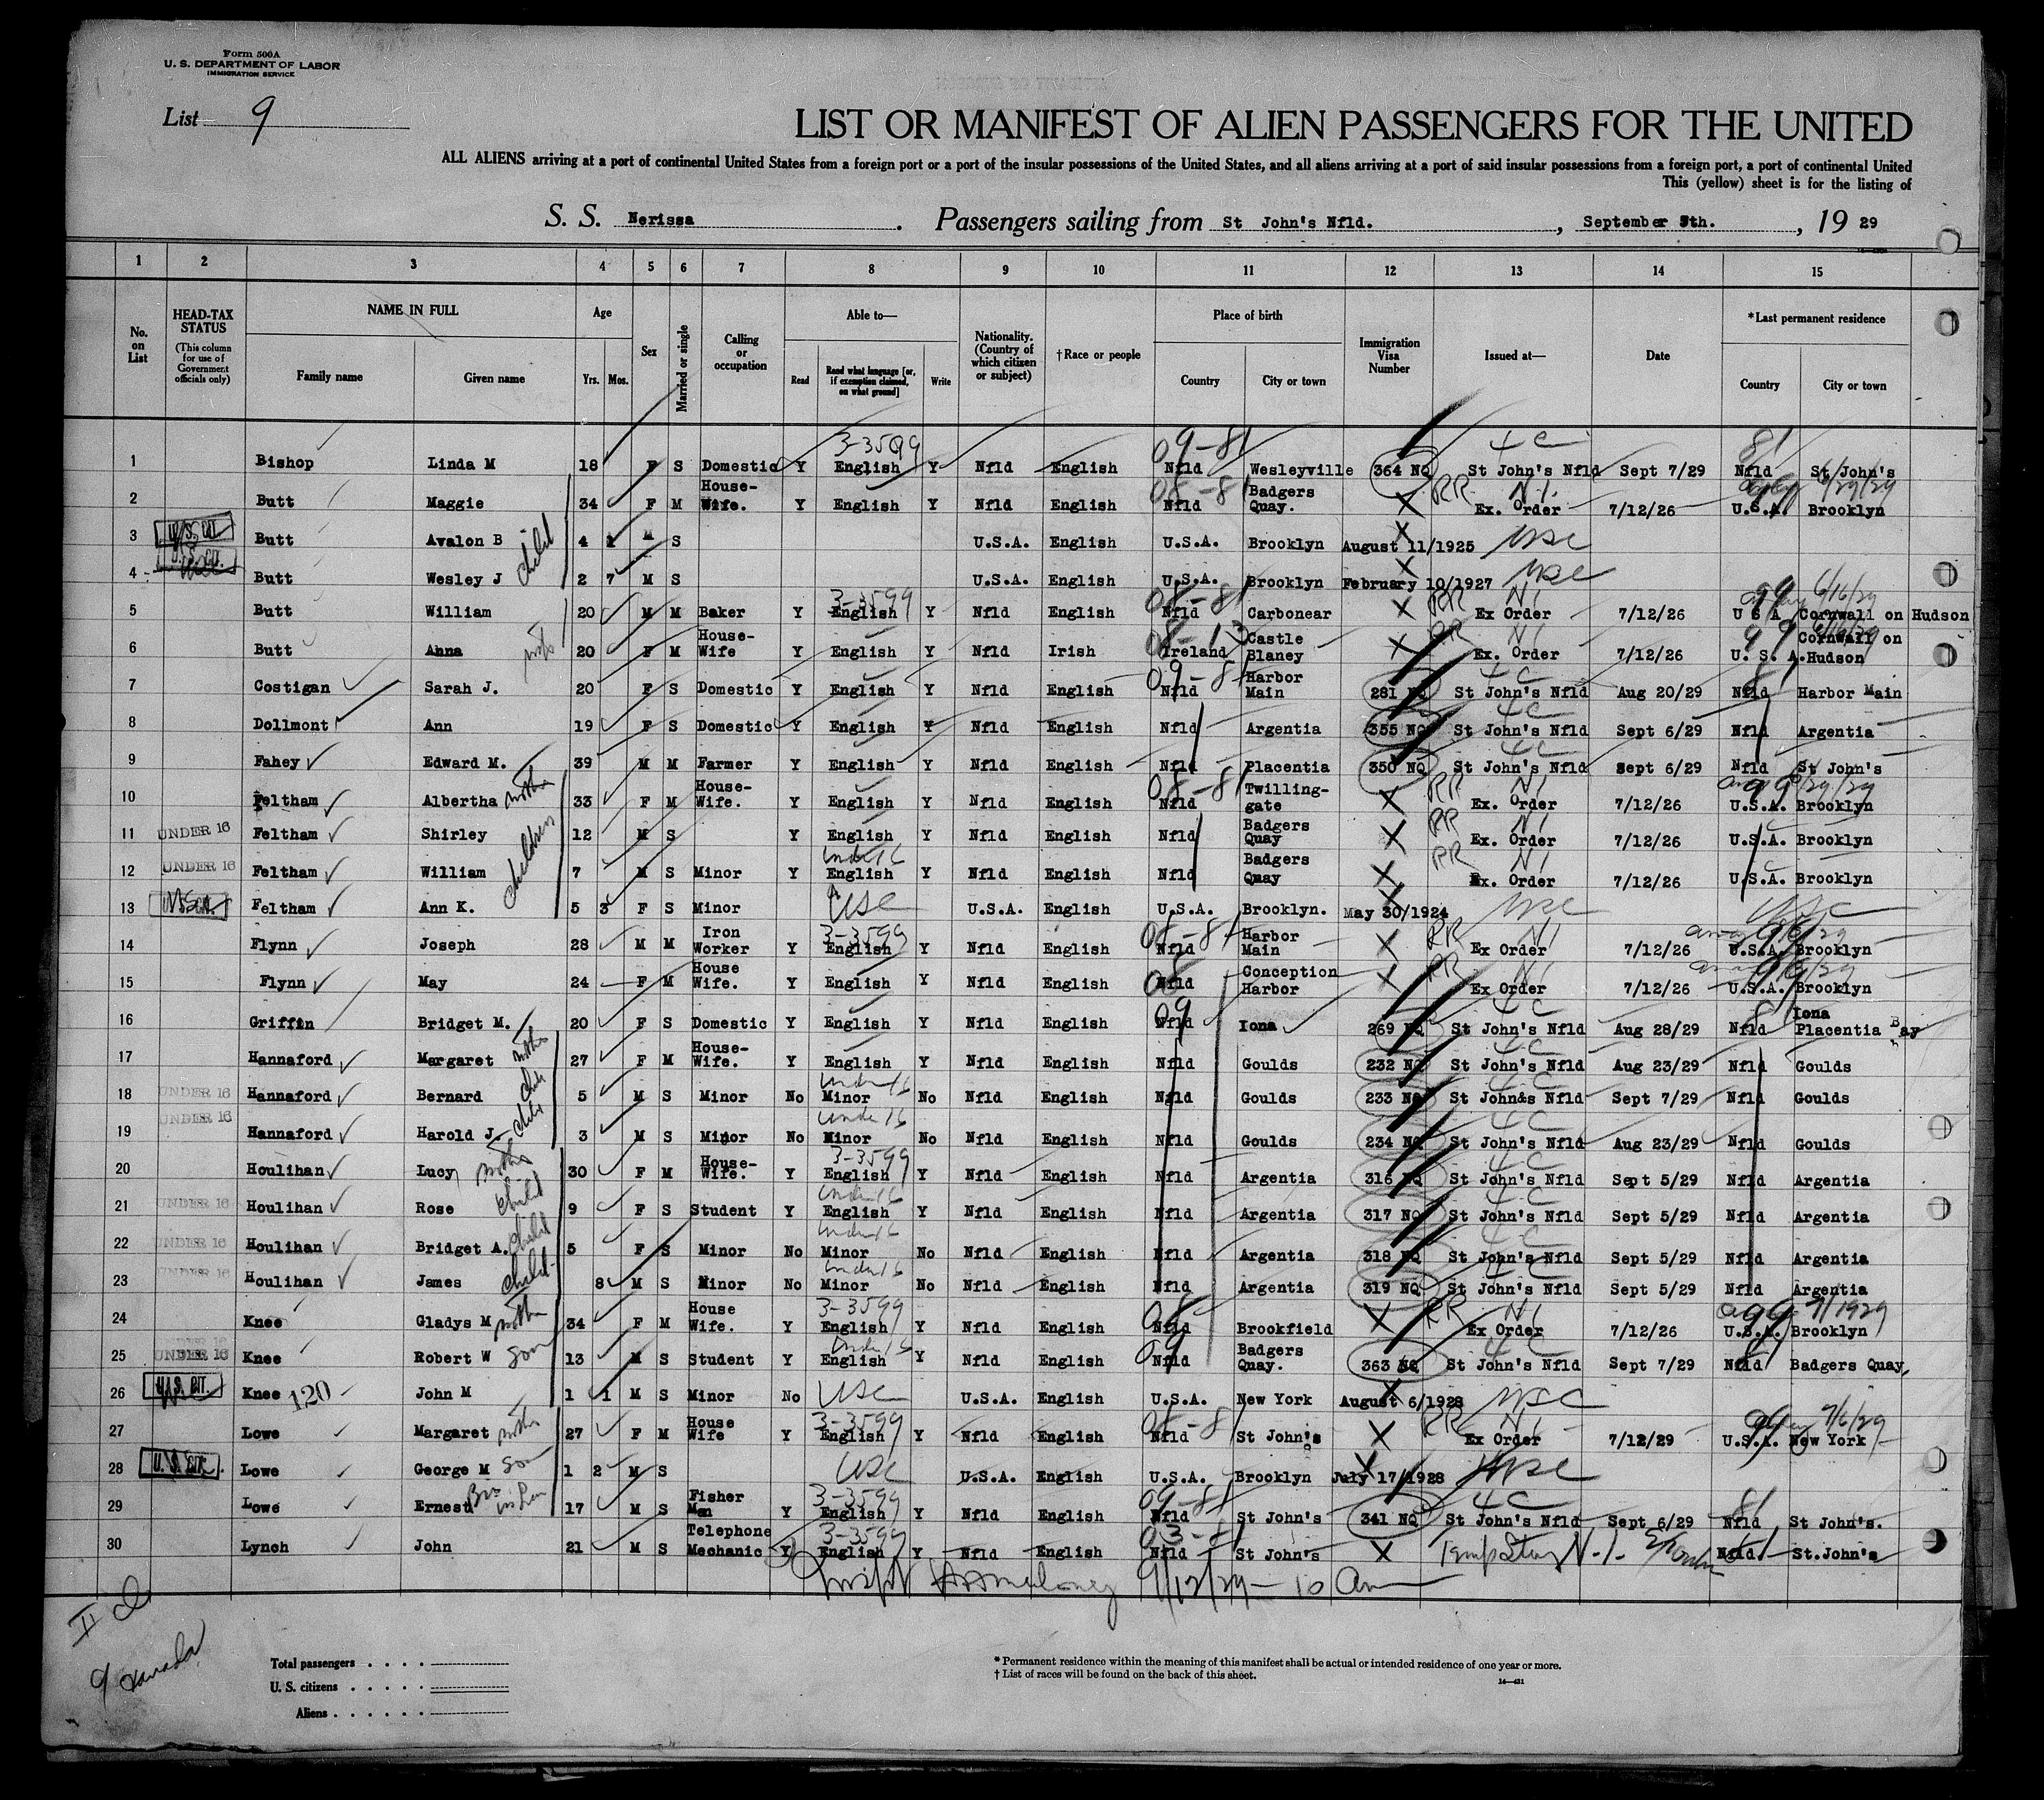 Form 500A
U. S. DEPARTMENT OF LABOR
IMMIGRATION SERVICE
List 9
LIST OR MANIFEST OF ALIEN PASSENGERS FOR THE UNITED
ALL ALIENS arriving at a port of continental United States from a foreign port or a port of the insular possessions of the United States, and all aliens arriving at a port of said insular possessions from a foreign port, a port of continental United
This (yellow) sheet is for the listing of
S. S. Nerissa. Passengers sailing from St John's Nfld., September 5th., 19 29
1 2 3 4 5 6 7 8 9 10 11 12 13 14 15
No. on List
HEAD-TAX STATUS
(This column for use of Government officials only)
NAME IN FULL
Family name Given name
Age
Yrs. Mos.
Sex
Married or single
Calling or occupation
Able to—
Read
Read what language [or, if exemption claimed, on what ground]
Write
Nationality. (Country of which citizen or subject)
†Race or people
Place of birth
Country City or town
Immigration Visa Number
Issued at—
Date
*Last permanent residence
Country City or town
1 Bishop Linda M 18 F S Domestic Y 3-3599 English Y Nfld English 09-81 Nfld Wesleyville 364 NQ 4C St John's Nfld Sept 7/29 81 Nfld St John's
2 Butt Maggie 34 F M House-Wife. Y English Y Nfld English 08-81 Nfld Badgers Quay. X RR N.I. Ex. Order 7/12/26 99 U.S.A. Brooklyn
3 U.S. CIT. Butt Avalon B child 4 1 M S U.S.A. English U.S.A. Brooklyn X August 11/1925 USC
4 U.S. CIT. Butt Wesley J 2 7 M S U.S.A. English U.S.A. Brooklyn X February 10/1927 USC
5 Butt William 20 M M Baker Y 3-3599 English Y Nfld English 08-81 Nfld Carbonear X RR NI Ex Order 7/12/26 99 6/16/29 U S A Cornwall on Hudson
6 Butt Anna wife 20 F M House-Wife Y English Y Nfld Irish 08-13 Ireland Castle Blaney X RR NI Ex. Order 7/12/26 99 6/16/29 U. S. A. Cornwall on Hudson
7 Costigan Sarah J. 20 F S Domestic Y English Y Nfld English 09-81 Nfld Harbor Main 281 NQ 4C St John's Nfld Aug 20/29 81 Nfld Harbor Main
8 Dollmont Ann 19 F S Domestic Y English Y Nfld English Nfld Argentia 355 NQ 4C St John's Nfld Sept 6/29 Nfld Argentia
9 Fahey Edward M. 39 M M Farmer Y English Y Nfld English Nfld Placentia 350 NQ 4C St John's Nfld Sept 6/29 Nfld St John's
10 Feltham Albertha mother 33 F M House-Wife. Y English Y Nfld English 08-81 Nfld Twilling-gate X RR NI Ex. Order 7/12/26 99 U.S.A. Brooklyn
11 UNDER 16 Feltham Shirley children 12 M S Y English Y Nfld English Nfld Badgers Quay X RR NI Ex. Order 7/12/26 U.S.A. Brooklyn
12 UNDER 16 Feltham William 7 M S Minor Y under 16 English Y Nfld English Nfld Badgers Quay X RR NI Ex. Order 7/12/26 U.S.A. Brooklyn
13 U.S. CIT. Feltham Ann K. 5 3 F S Minor USC U.S.A. English U.S.A. Brooklyn. X May 30/1924 USC USC
14 Flynn Joseph 28 M M Iron Worker Y 3-3599 English Y Nfld English 08-81 Nfld Harbor Main X RR NI Ex Order 7/12/26 U.S.A. Brooklyn
15 Flynn May 24 F M House Wife. Y English Y Nfld English 08 Nfld Conception Harbor X RR NI Ex Order 7/12/26 U.S.A. Brooklyn
16 Griffin Bridget M. 20 F S Domestic Y English Y Nfld English 09 Nfld Iona 269 NQ 4C St John's Nfld Aug 28/29 81 Nfld Iona Placentia Bay
17 Hannaford Margaret mother 27 F M House-Wife. Y English Y Nfld English Nfld Goulds 232 NQ 4C St John's Nfld Aug 23/29 Nfld Goulds
18 UNDER 16 Hannaford Bernard child 5 M S Minor No under 16 Minor No Nfld English Nfld Goulds 233 NQ 4C St John&s Nfld Sept 7/29 Nfld Goulds
19 UNDER 16 Hannaford Harold J. child 3 M S Minor No under 16 Minor No Nfld English Nfld Goulds 234 NQ 4C St John's Nfld Aug 23/29 Nfld Goulds
20 Houlihan Lucy mother 30 F M House-Wife. Y 3-3599 English Y Nfld English Nfld Argentia 316 NQ 4C St John's Nfld Sept 5/29 Nfld Argentia
21 UNDER 16 Houlihan Rose child 9 F S Student Y under 16 English Y Nfld English Nfld Argentia 317 NQ 4C St John's Nfld Sept 5/29 Nfld Argentia
22 UNDER 16 Houlihan Bridget A. child 5 F S Minor No under 16 Minor No Nfld English Nfld Argentia 318 NQ 4C St John's Nfld Sept 5/29 Nfld Argentia
23 UNDER 16 Houlihan James child 8 M S Minor No under 16 Minor No Nfld English Nfld Argentia 319 NQ 4C St John's Nfld Sept 5/29 Nfld Argentia
24 Knee Gladys M mother 34 F M House Wife. Y 3-3599 English Y Nfld English 08 Nfld Brookfield X RR NI Ex Order 7/12/26 99 U.S.A. Brooklyn
25 UNDER 16 Knee Robert W son 13 M S Student Y under 16 English Y Nfld English 09 Nfld Badgers Quay. 363 NQ 4C St John's Nfld Sept 7/29 Nfld Badgers Quay,
26 U.S. CIT. Knee 120 John M 1 1 M S Minor No USC U.S.A. English U.S.A. New York X August 6/1928 USC
27 Lowe Margaret mother 27 F M House Wife Y 3-3599 English Y Nfld English 08-81 Nfld St John's X RR NI Ex Order 7/12/29 99 7/6/29 U.S.A. New York
28 U. S. CIT. Lowe George M son 1 2 M S USC U.S.A. English U.S.A. Brooklyn X July 17/1928 USC
29 Lowe Ernest Bro in Law 17 M S Fisher Man Y 3-3599 English Y Nfld English 09-81 Nfld St John's 341 NQ 4C St John's Nfld Sept 6/29 81 Nfld St John's.
30 Lynch John 21 M S Telephone Mechanic Y 3-3599 English Y Nfld English 03-81 Nfld St John's X N.I. Nfld St.John's
9/12/29 - 10 Am
9 Canada
Total passengers
U. S. citizens
Aliens
* Permanent residence within the meaning of this manifest shall be actual or intended residence of one year or more.
† List of races will be found on the back of this sheet.
14—431